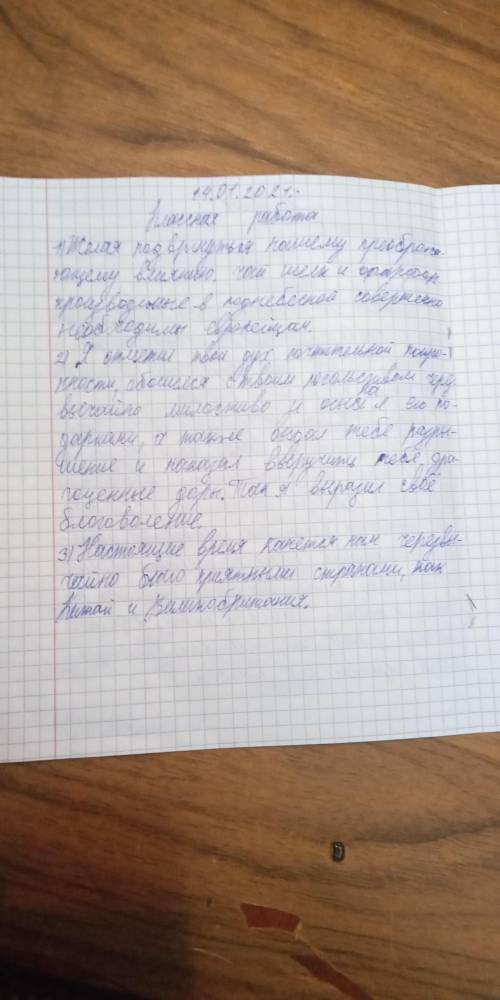 14.01.2021г
Классная работа
1) Желая подвергнуться нашему преобража-
ющему влиянию. Чай шелк и фарфор
производимые в поднебесной совершенно
необходимы европейцам.
2) Я отметил твой дух почтительной покор-
ности, обошелся с твоим посольством чрез
вычайно милостиво и осыпал его по-
дарками, а также выдал тебе
и наказал вверучить тебе дра-
гоценные дары. Так я выразил своё
благоволение.
3) Настоящие время кажется нам черезвы-
чайно было приятными странами, как
Китай и Великобритания.